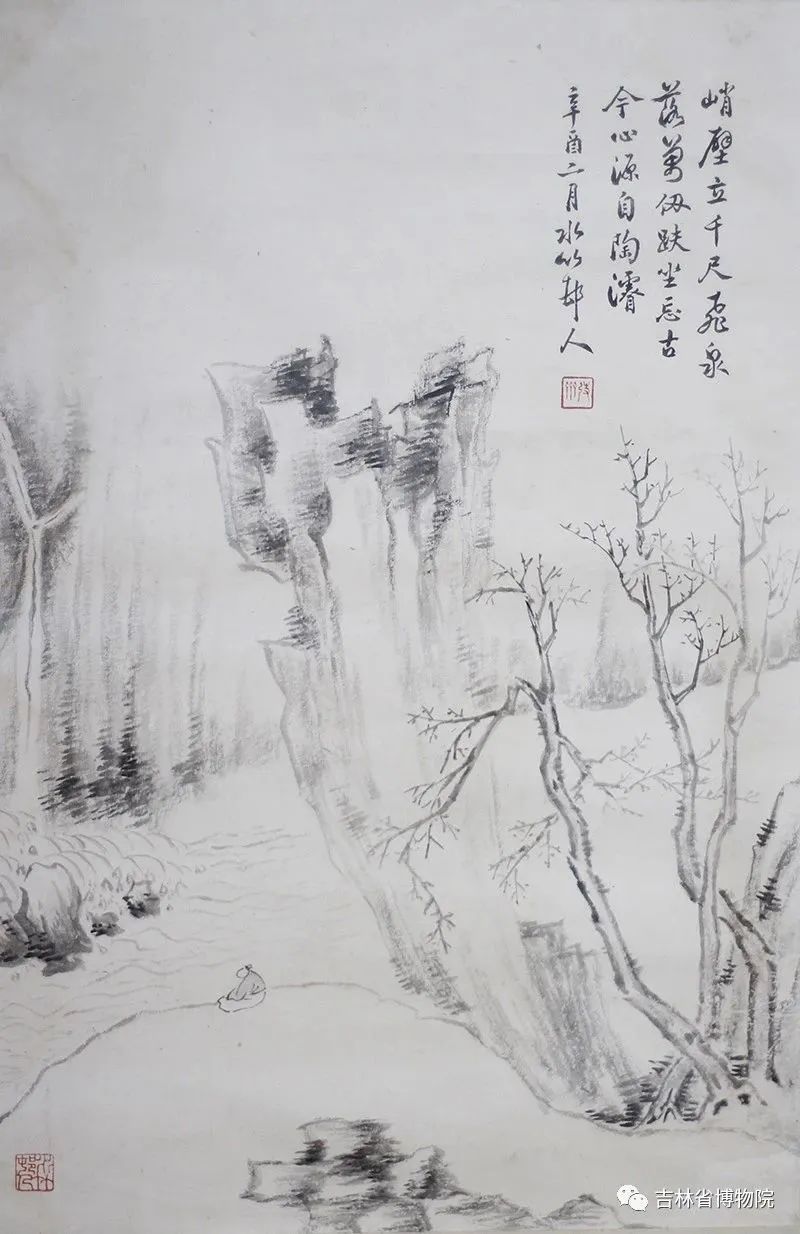 峭壁立千尺飛泉
落萬仞趺坐忘古
今心源自陶濬
辛酉二月水竹邨人
吉林省博物院